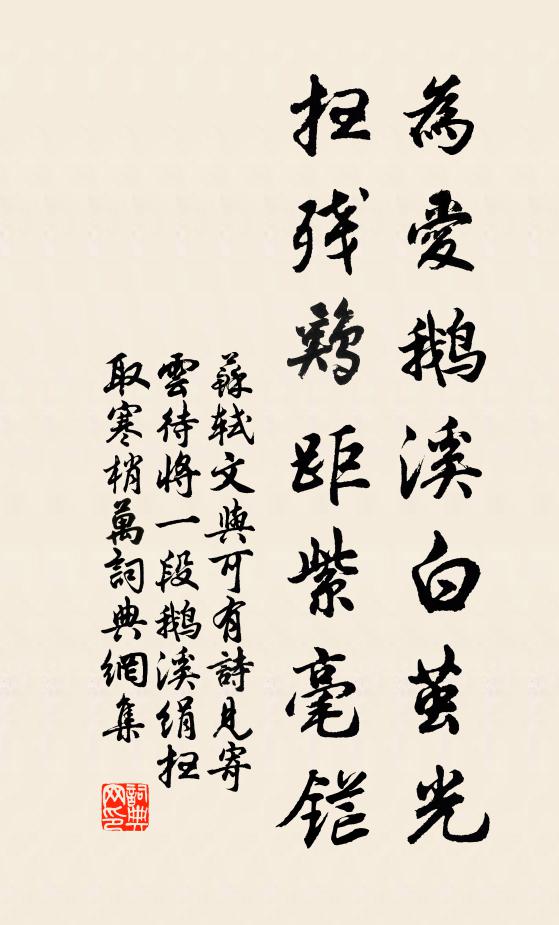 為愛鵝溪白茧光
扫残鷄距紫毫鋩
蘇軾文與可有詩見寄
雲待將一段鵝溪絹扫
取寒梢萬詞典網集
詞典
网印